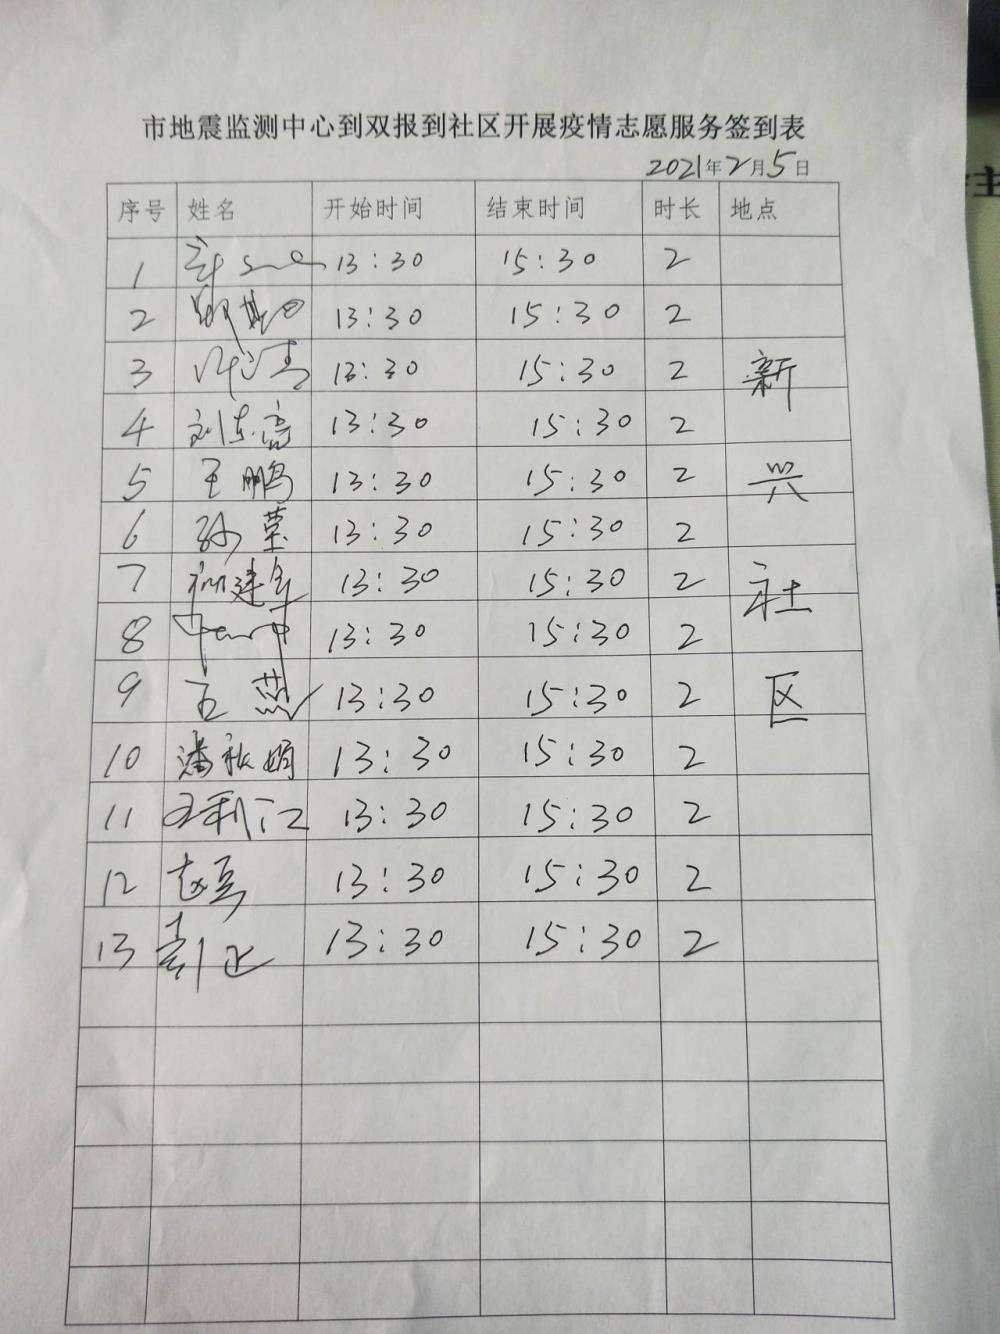 市地震监测中心到双报到社区开展疫情志愿服务签到表
2021年2月5日
序号 姓名 开始时间 结束时间 时长 地点
1 13:30 15:30 2
2 13:30 15:30 2
3 13:30 15:30 2 新
4 刘东亮 13:30 15:30 2
5 王鹏 13:30 15:30 2 兴
6 孙莹 13:30 15:30 2
7 13:30 15:30 2 社
8 13:30 15:30 2
9 王燕 13:30 15:30 2 区
10 潘秋娟 13:30 15:30 2
11 王利江 13:30 15:30 2
12 赵勇 13:30 15:30 2
13 13:30 15:30 2